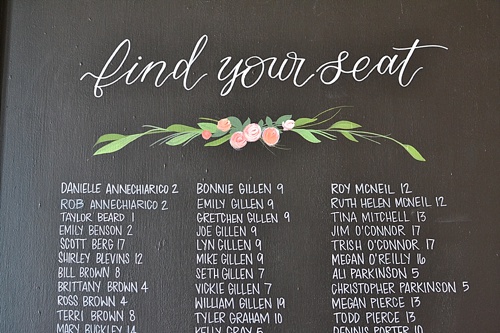 find your seat
DANIELLE ANNECHIARICO 2
ROB ANNECHIARICO 2
TAYLOR BEARD 1
EMILY BENSON 2
SCOTT BERG 17
SHIRLEY BLEVINS 12
BILL BROWN 8
BRITTANY BROWN 4
ROSS BROWN 4
TERRI BROWN 8
MARY BUCKLEY 14
BONNIE GILLEN 9
EMILY GILLEN 9
GRETCHEN GILLEN 9
JOE GILLEN 9
LYN GILLEN 9
MIKE GILLEN 9
SETH GILLEN 7
VICKIE GILLEN 7
WILLIAM GILLEN 19
TYLER GRAHAM 10
KELLY GRAY 5
ROY MCNEIL 12
RUTH HELEN MCNEIL 12
TINA MITCHELL 13
JIM O'CONNOR 17
TRISH O'CONNOR 17
MEGAN O'REILLY 16
ALI PARKINSON 5
CHRISTOPHER PARKINSON 5
MEGAN PIERCE 13
TODD PIERCE 13
DENNIS PORTER 10